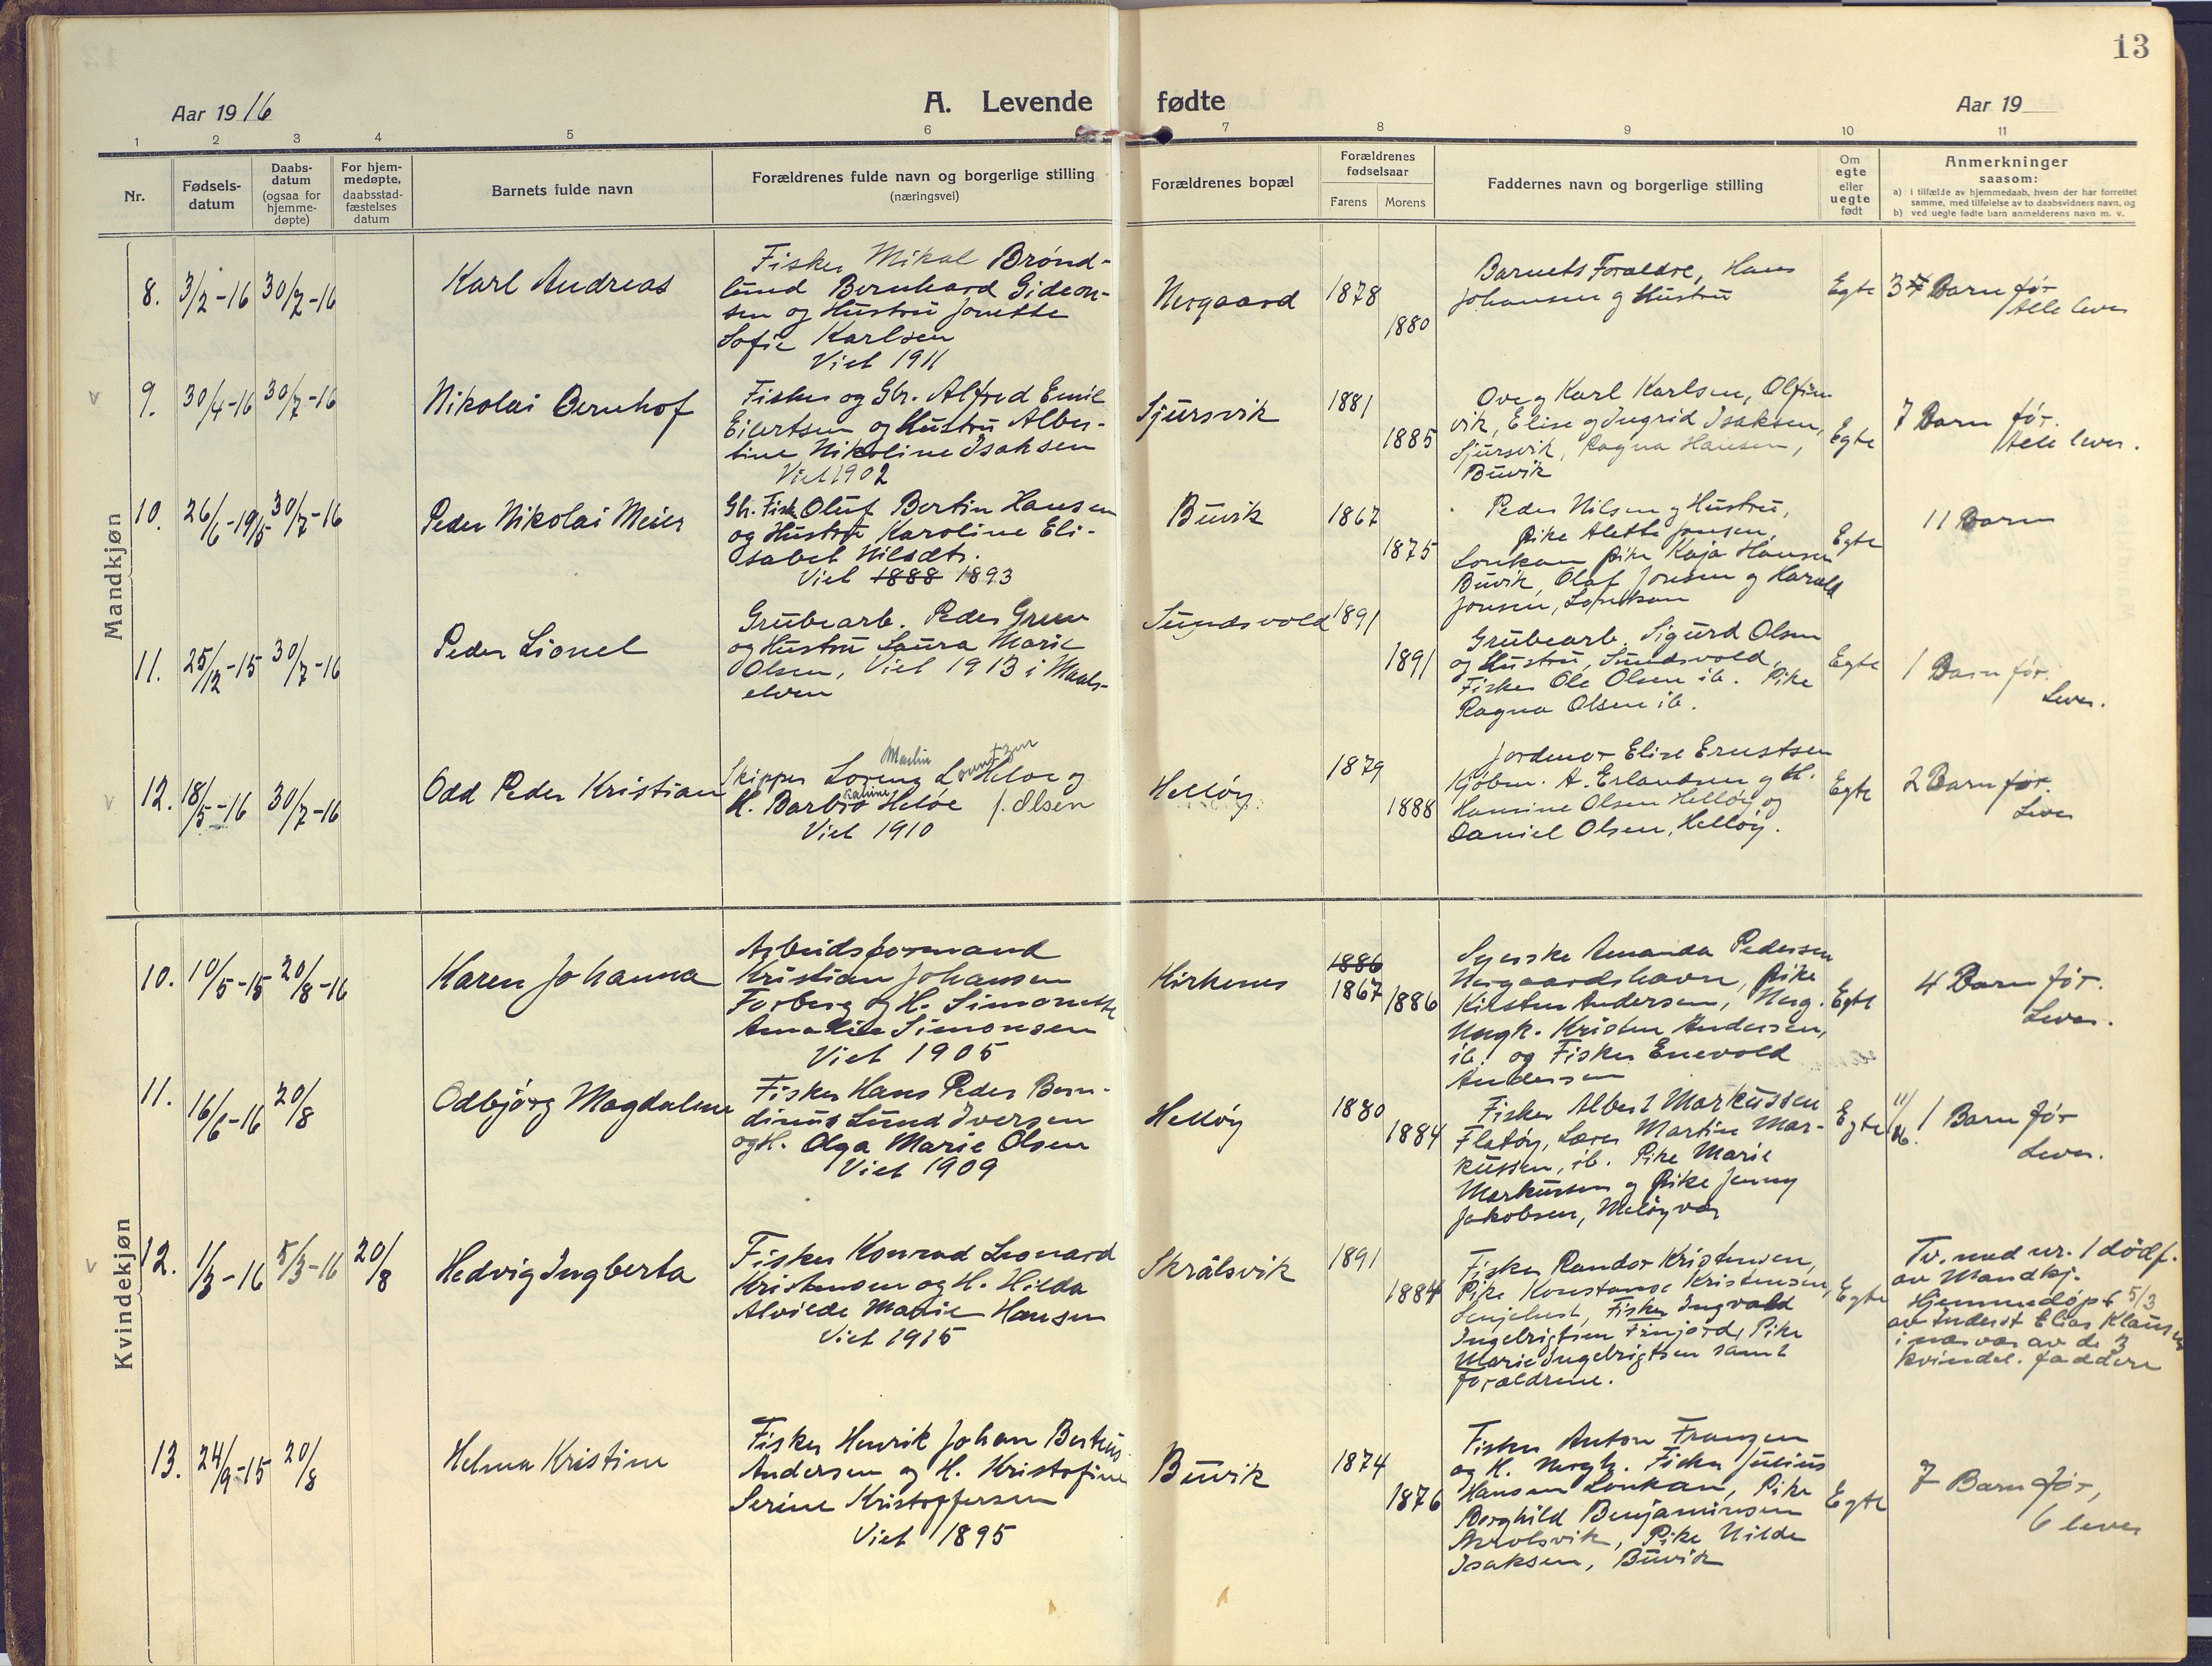 13
Aar 1916
A. Levende fødte
Aar 19
1 2 3 4 5 6 7 8 9 10 11
Nr.
Fødsels-
datum
Daabs-
datum
(ogsaa for
hjemme-
døpte)
For hjem-
medøpte,
daabsstad-
fæstelses
datum
Barnets fulde navn
Forældrenes fulde navn og borgerlige stilling
(næringsvei)
Forældrenes bopæl
Forældrenes
fødselsaar
Farens Morens
Faddernes navn og borgerlige stilling
Om
egte
eller
uegte
født
Anmerkninger
saasom:
a) i tilfælde av hjemmedaab, hvem der har forrettet
samme, med tilføielse av to daabsvidners navn, og
b) ved uegte fødte barn anmelderens navn m. v.
Mandkjøn
8. 3/2-16 30/7-16
Karl Andreas
Fisker Mikal Brønd-
lund Bernhard Gideon-
sen og Hustru Jonette
Sofie Karlsen
Viet 1911
Nergaard
1878
1880
Barnets Foraldre, Hans
Johansen og Hustru
Egte
3 Barn før
Alle lever
9. 30/4-16 30/7-16
Nikolai Bernhof
Fisker og Gbr. Alfred Emil
Eilertsen og Hustru Alber-
tine Nikoline Isaksen
Viet 1902
Sjursvik
1881
1885
Ove og Karl Karlsen,
vik, Elise og Ingrid Isaksen,
Sjursvik, Ragna Hansen,
Buvik
Egte
7 Barn før.
Alle lever.
10. 26/6-19/5 30/7-16
Peder Nikolai Meier
Gbr. Fisk. Oluf Bertin Hansen
og Hustru Karoline Eli-
sabet Nilsdt.
Viet 1888 1893
Buvik
1867
1875
Peder Nilsen og Hustru,
Pike Alette Jonsen,
Lonkan Pike Kaja Hansen
Buvik, Olaf Jonsen og Harald
Jonsen, Lonkan
Egte
11 Barn
11. 25/12-15 30/7-16
Peder Lionel
Grubearb. Peder
og Hustru Laura Marie
Olsen, Viet 1913 i Maals-
elven
Sundsvold
1891
1891
Grubearb. Sigurd Olsen
og Hustru, Sundsvold,
Fisker Ole Olsen ib. Pike
Ragna Olsen ib.
Egte
1 Barn før.
Lever.
12. 18/5-16 30/7-16
Odd Peder Kristian
Martin
Skipper Lorenz Heløe og
H. Barbro Heløe f. Olsen
Viet 1910
Helløy
1879
1888
Jordmor Elise Ernstsen
Kjøbm. A. Erlandsen og H.
Hansine Olsen Helløy og
Daniel Olsen, Helløy.
Egte
2 Barn før.
Lever
Kvindekjøn
10. 10/5-15 20/8-16
Karen Johanna
Arbeidsformand
Kristian Johansen
Forberg og H. Simonette
Amalie Simonsen
Viet 1905
Kirkenes
1886
1867
1886
Syerske Amanda Pedersen
Nergaardshavn, Pike
Kirsten Andersen, Nerg.
Ungk. Kristen Andersen,
ib. og Fisker Enevold
Andersen
Egte
4 Barn før.
Lever.
11. 16/6-16 20/8
Odbjørg Magdalene
Fisker Hans Peder Bern-
dinus Lund Iversen
og H. Olga Marie Olsen
Viet 1909
Helløy
1880
1884
Fisker Albert Markussen
Flatøy, Lærer Martin Mar-
kussen, ib. Pike Marie
Markussen og Pike Jenny
Jakobsen, Meløyvær
Egte
1 Barn før
Lever.
12. 1/3-16 5/3-16 20/8
Hedvig Ingberta
Fisker Konrad Leonard
Kristensen og H. Hilda
Alvilde Marie Hansen
Viet 1915
Skrålsvik
1891
1884
Fisker Randor Kristensen,
Pike Konstanse Kristensen,
Senjehest, Fisker Ingvald
Ingebrigtsen Finjord, Pike
Marie Ingebrigtsen samt
forældrene.
Egte
Tv. med nr. 1 dødf.
av Mandkj.
Hjemmedøpt 5/3
av Inderst Elias Klausen
i nærvær av de 3
kvindel. faddere
13. 24/9-15 20/8
Helma Kristine
Fisker Henrik Johan Berteus
Andersen og H. Kristofine
Serine Kristoffersen
Viet 1895
Buvik
1874
1876
Fisker Anton Franzen
og H. Fisker Julius
Hansen Lonkan, Pike
Borghild Benjaminsen
Skrolsvik, Pike Hilda
Isaksen, Buvik
Egte
7 Barn før,
6 lever